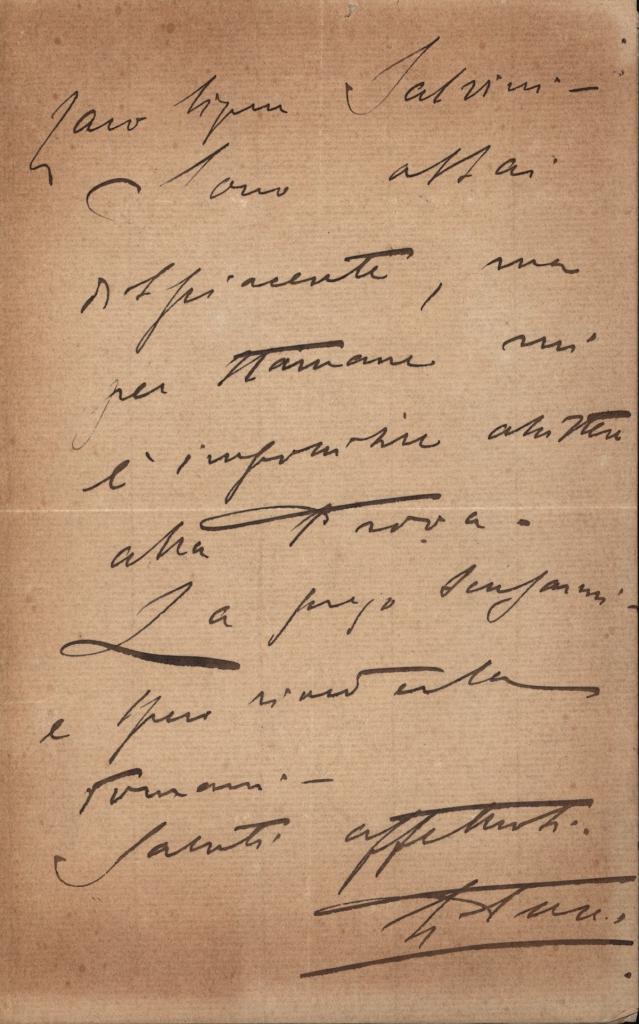 Caro Signor Salvini —
Sono assai
dispiacente, ma
per stamane mi
è impossibile assistere
alla Prova.
La prego scusarmi -
e spero rivederla
domani. —
Saluti affettuosi.